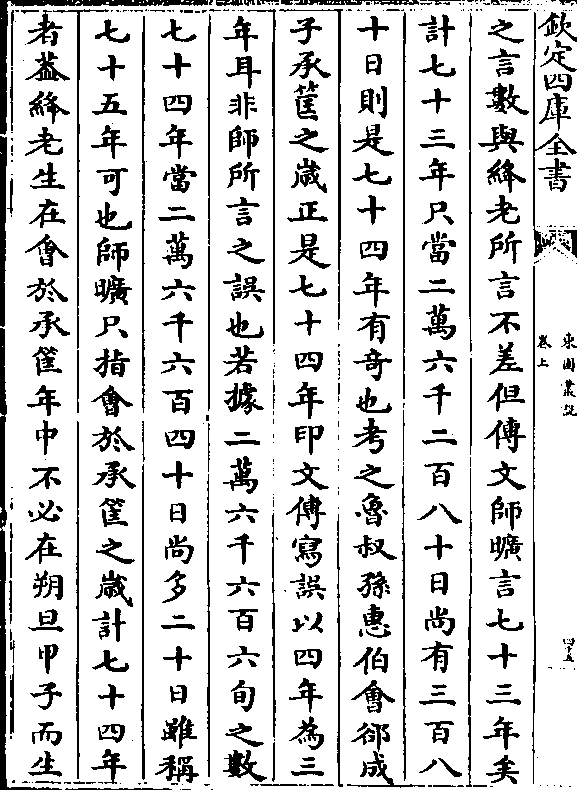 欽定四庫全書
東園叢說
卷上
四十五
之言數與絳老所言不差但傳文師曠言七十三年矣
計七十三年只當二萬六千二百八十日尚有三百八
十日則是七十四年有竒也考之魯叔孫惠伯會郤成
子承筐之歲正是七十四年印文傳寫誤以四年為三
年耳非師所言之誤也若據二萬六千六百六旬之數
七十四年當二萬六千六百四十日尚多二十日雖稱
七十五年可也師曠只指會於承筐之歲計七十四年
者葢絳老生在會於承筐年中不必在朔旦甲子而生